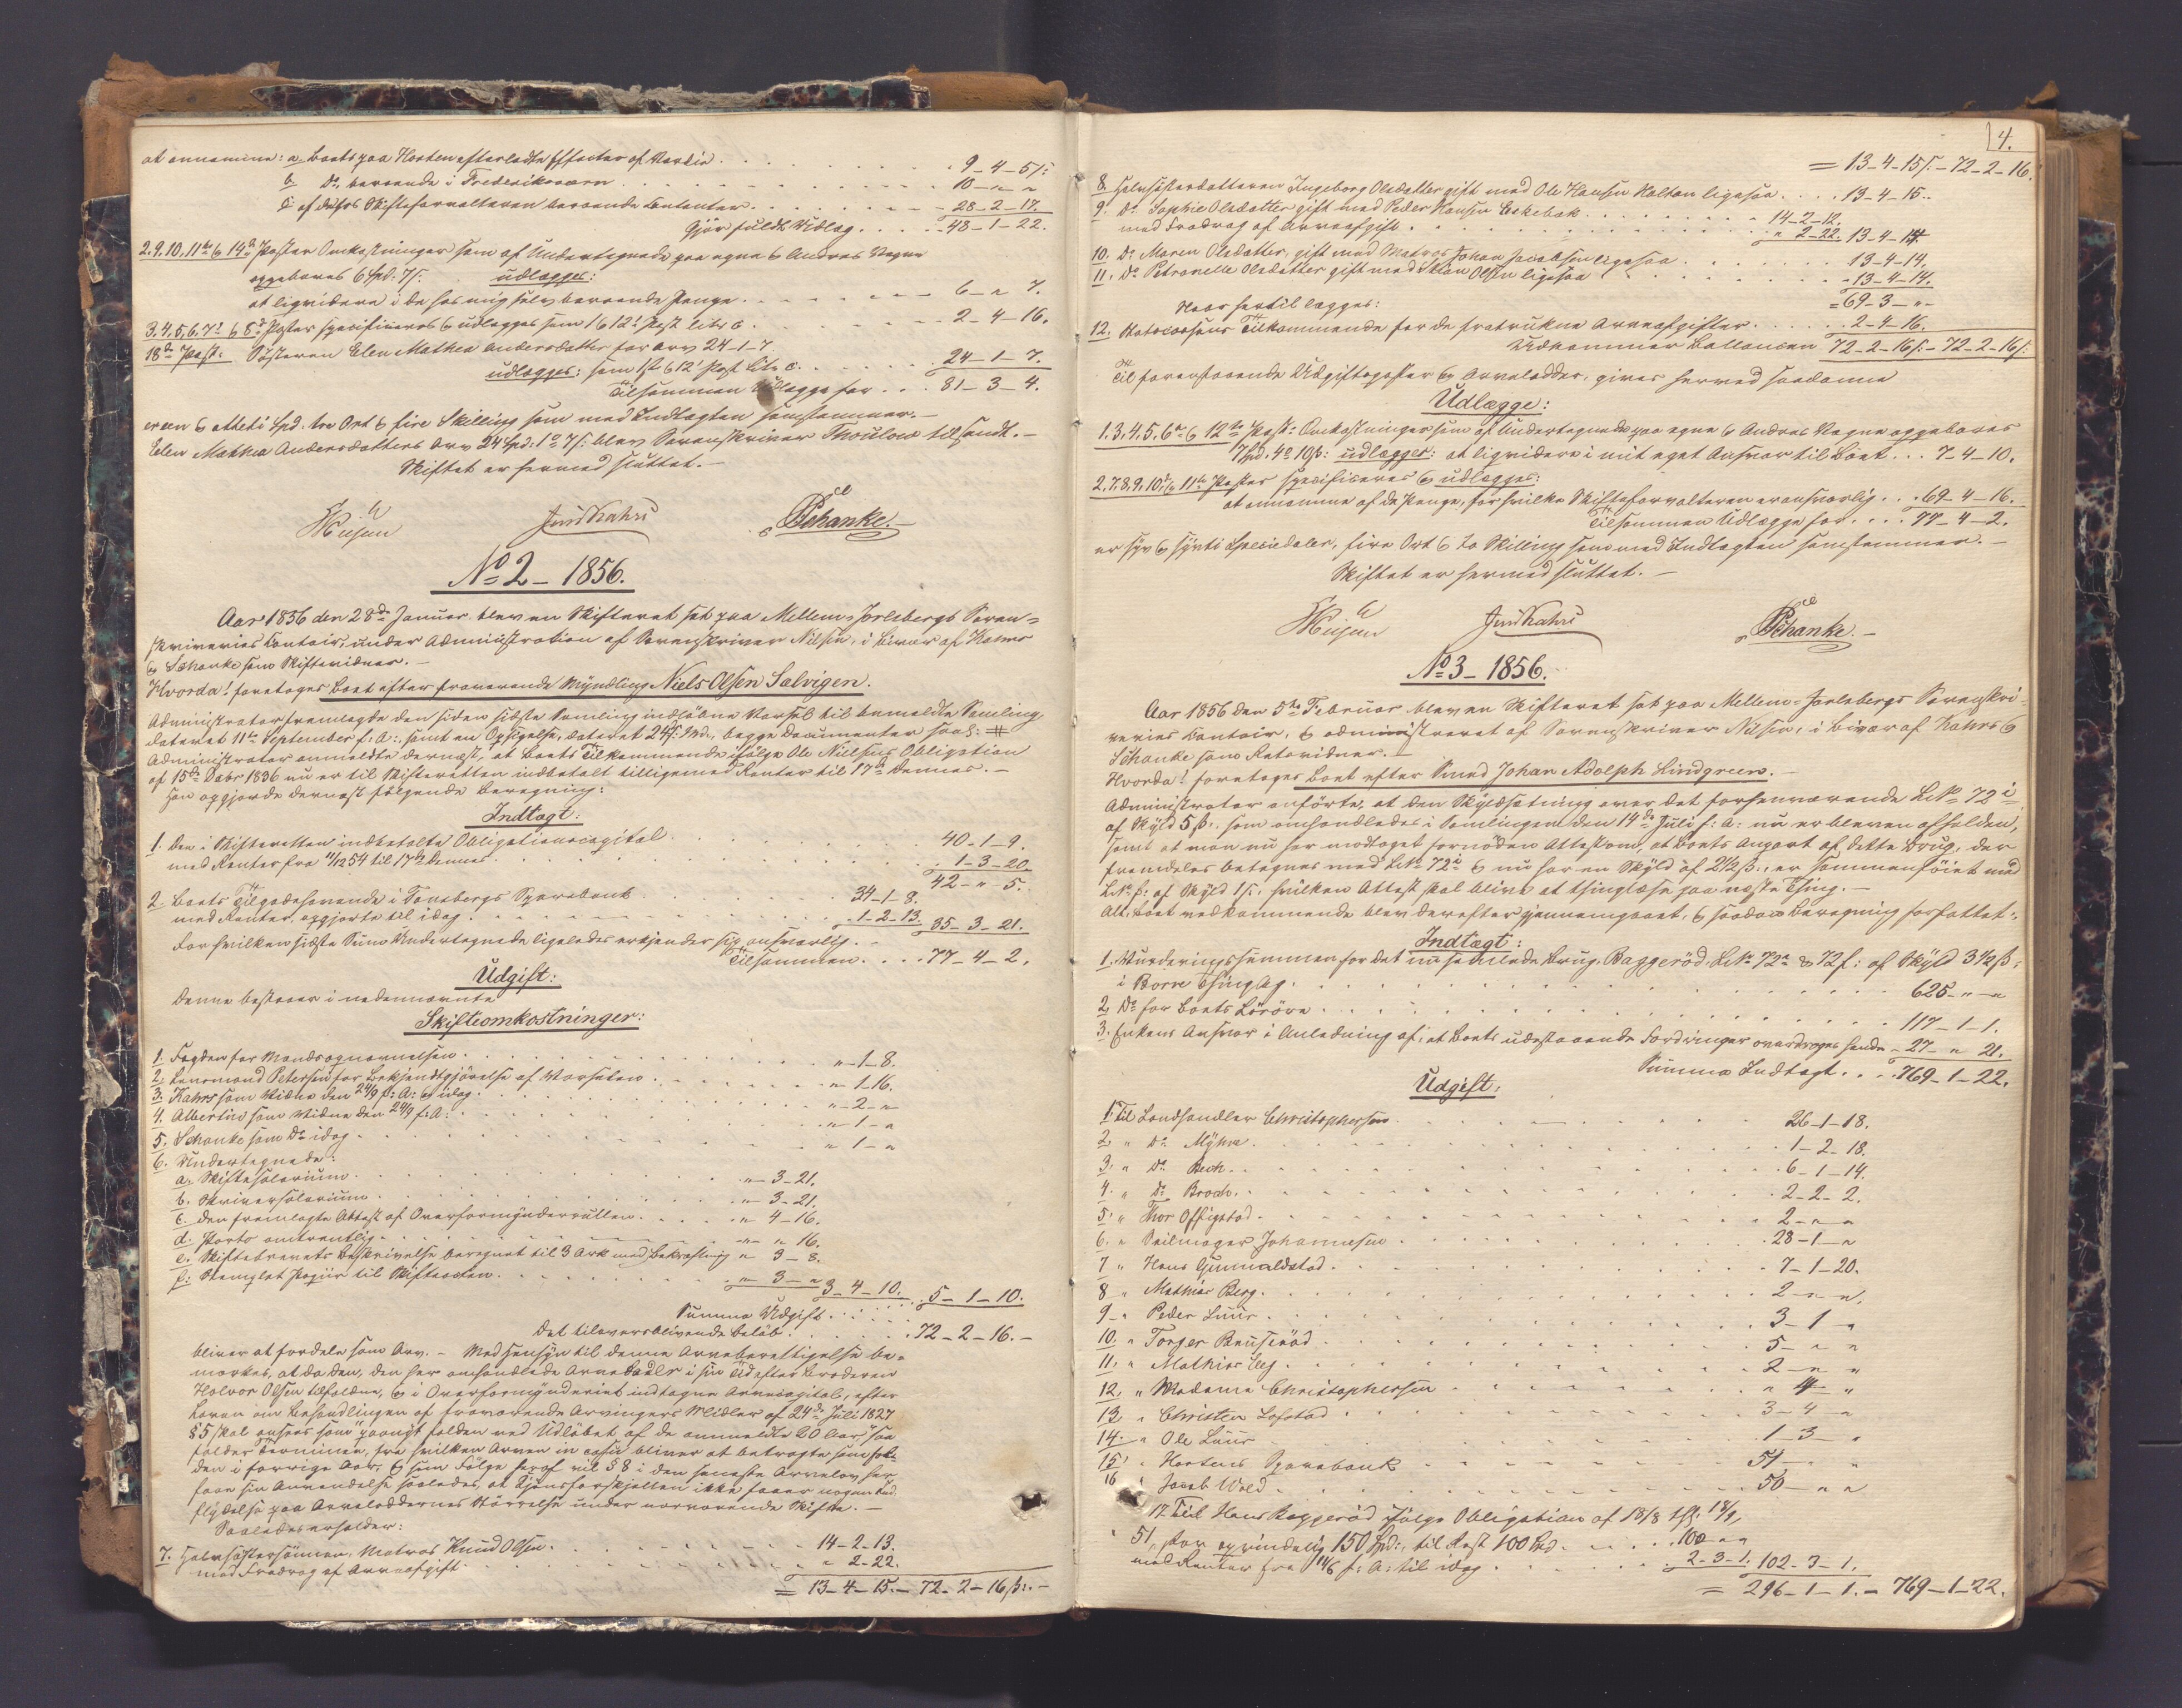 at annamme: a. Boets paa Horten efterladte Effecter af Værdie . . . 9-4-5 ſ:
b. Do, beroende i Frederiksværn . . . 10-"-"
c. af de hos Skifteforvalteren beroende Contanter . . . 28-2-17.
Gjør fuldt Udlæg . . . 48-1-22.
2.9.10.11te & 14de Poster Omkostninger som af Undertegnede paa egne & Andres Vegne
oppebæres 6 Spd. 7 ſ. udlægges:
at liqvidere i de hos mig selv beroende Penge . . . 6-"-7.
3.4.5.6.7de & 8de Poster specificeres & udlægges som 1 & 12te Post litr. c. . . . 2-4-16.
18de Post: Søsteren Elen Mathea Andersdatter for Arv 24-1-7
udlægges: som 1ste & 12te Post Litr. c. . . . 24-1-7.
Tilsammen Udlægge for . . . 81-3-4.
er een & otteti Spd. tre Ort & fire Skilling som med Indtægten samstemmer.-
Elen Mathea Andersdatters Arv 24 Spd. 1o 7 ſ: blev Sorenskriver Thoulow tilsendt.-
Skiftet er hermed sluttet.-
Nilsen Jens Kahrs Schanke.-
No 2 - 1856.
Aar 1856 den 28de Januar blev en Skifteret sat paa Mellem-Jarlsbergs Soren-
skriveries Contoir, under Administration af Sorenskriver Nilsen, i Bivær af Kahrs
& Schanke som Skiftevidner.-
Hvorda! foretoges Boet efter fraværende Myndling Niels Olsen Salvigen.
Administrator fremlagde den siden sidste Samling indløbne Varsel til anmeldte Samling
dateret 11te September f: A:, samt en Opsigelse, dateret 24 ſ: Md., begge Documenter saal: #
Administrator anmeldte dernæst, at Boets Tilkommende ifølge Ole Nielsens Obligation
af 15de Decbr 1836 nu er til Skifteretten indbetalt tilligemed Renter til 17de Dennes.-
Han opgjorde dernæst følgende Beregning:
Indtægt:
1. Den i Skifteretten indbetalte Obligationscapital . . . 40-1-9.
med Renter fra 11/12 54 til 17de Dennes . . . 1-3-20.
42-"-5.
2. Boets Tilgodehavende i Tønsbergs Sparebank . . . 34-1-8.
med Renter, opgjorte til idag . . . 1-2-13. 35-3-21.
For hvilken sidste Sum Undertegnede ligeledes erkjender sig ansvarlig.-
Tilsammen . . . 77-4-2.
Udgift:
Denne bestaaer i nedennævnte
Skifteomkostninger:
1. Fogden for Mandsopnævnelsen . . . "-1-8.
2. Lensmand Petersen for Bekjendtgjørelse af Varselen . . . "-1-16.
3. Kahrs som Vidne den 24/9 f: A: & idag . . . "-2-"
4. Albertin som Vidne den 24/9 f: A: . . . "-1-"
5. Schanke som Do idag . . . "-1-"
6. Undertegnede:
a. Skiftesalarium . . . "-3-21.
b. Skriversalarium . . . "-3-21.
c. den fremlagte Attest af Overformynderrullen . . . "-4-16.
d. Porto omtrentlig . . . "-"-16.
e. Skiftebrevets Beskrivelse beregnet til 3 Ark med Bekræftning "-3-8.
f. Stemplet Papiir til Skifteacten . . . "-3-" 3-4-10. 5-1-10.
Summa Udgift . . .
Det tiloversblivende Beløb . . . 72-2-16.-
bliver at fordele som Arv.- Med Hensyn til denne Arveberettigelse be-
mærkes, at da den, den her omhandlede Arvelader i sin Tid efter Broderen
Halvor Olsen tilfaldne, & i Overformynderiet indtagne Arvecapital, efter
Loven om Behandlingen af fraværende Arvingers Midler af 24de Juli 1827
§ 5 skal ansees som paany falden ved Udløbet af de anmeldte 20 Aar, saa
falder Terminen, fra hvilken Arven in casu bliver at betragte som fal-
den i forrige Aar, & som Følge heraf vil § 8 i den seneste Arvelov her
faae sin Anvendelse saaledes, at Kjønsforskjellen ikke faaer nogen Ind-
flydelse paa Arveloddernes Størrelse under nærværende Skifte.-
Saaledes erholder:
7. Halvsøstersønnen, Matros Knud Olsen . . . 14-2-13.
med Fradrag af Arveafgift . . . "-2-22.
= 13-4-15.- 72-2-16 ß:.-
4.
= 13-4-15 ſ.- 72-2-16.
8. Halvsøsterdatteren Ingeborg Olsdatter gift med Ole Hansen Holtan ligesaa . . . 13-4-15.
9. Do Sophie Olsdatter gift med Peder Hansen Eskebæk . . . 14-2-12.
med Fradrag af Arveafgift . . . "-2-22. 13-4-14.
10. Do Maren Olsdatter, gift med Matros Johan Jacobsen ligesaa . . . 13-4-14.
11. Do Petronelle Olsdatter gift med Olsen ligesaa . . . 13-4-14.
= 69-3-"-
Hvor hertil lægges:
12. Statscassens Tilkommende for de fratrukne Arveafgifter . . . 2-4-16.
Udkommer Ballancen 72-2-16 ſ:- 72-2-16 ſ:
Til foranstaaende Udgiftsposter & Arvelodder, gives herved saadanne
Udlægge:
1.3.4.5.6te & 12te Post: Omkostninger som af Undertegnede paa egne & Andres Vegne oppebæres
7 Spd. 4o 10 ß: udlægges: at liqvidere i mit eget Ansvar til Boet . . . 7-4-10.
2.7.8.9.10de & 11te Poster specificeres & udlægges:
at annamme af de Penge, for hvilke Skifteforvalteren er ansvarlig . . . 69-4-16.
Tilsammen Udlægge for . . . 77-4-2.
er syv & sytti Speciedaler, fire Ort & to Skilling som med Indtægten samstemmer.-
Skiftet er hermed sluttet.-
Nilsen Jens Kahrs Schanke.-
No 3 - 1856.
Aar 1856 den 5te Februar blev en Skifteret sat paa Mellem-Jarlsbergs Sorenskri-
veries Contoir, & administreret af Sorenskriver Nilsen, i Bivær af Kahrs &
Schanke som Retsvidner.-
Hvorda! foretoges Boet efter Smed Johan Adolph Lindgreen.-
Administrator anførte, at den Skyldsætning over det forhenværende LNo 72 i
af Skyld 5 ß., som omhandledes i Samlingen den 14de Juli f: A: nu er bleven afholden,
samt at man nu har modtaget fornøden Attest om, at Boets Anpart af dette Brug, der
fremdeles betegnes med LNo 72 i & nu har en Skyld af 2 1/2 ß., er sammenføiet med
LNo f: af Skyld 1 ſ:, hvilken Attest skal blive at thinglæse paa næste Thing.-
Alt Boet vedkommende blev derefter gjennemgaaet, & saadan Beregning forfattet:
Indtægt:
1. Vurderingssummen for det nu samlede Brug, Baggerød, LNo 72 & 72 f: af Skyld 3 1/2 ß:
i Borre Thinglag . . . 625-"-"
2. Do for Boets Løsøre . . . 117-1-1.
3. Enkens Ansvar i Anledning af, at Boets udestaaende Fordringer overdrages hende - 27-"-21.
Summa Indtægt . . . 769-1-22.
Udgift:
1. Til Landhandler Christophersen . . . 26-1-18.
2. " Do Myhre . . . 1-2-18.
3. " Do Bech . . . 6-1-14.
4. " Do Broch . . . 2-2-2.
5. " Thor Offigstad . . . 2-"-"
6. " Seilmager Johannesen . . . 28-1-"
7. " Hans Gunnaldstad . . . 7-1-20.
8. " Mathias Berg . . . 2-"-".
9. " Peder Luur . . . 3-1-"
10. " Torger . . . 5-"-"
11. " Mathias Eeg . . . 2-"-"
12. " Madame Christophersen . . . "-4-"
13. " Christen Lofstad . . . 3-4-"
14. " Ole Luur . . . 1-3-"
15. " Hortens Sparebank . . . 54-"-"
16. " Jacob Wold . . . 50-"-"
17. Til Hans Baggerød ifølge Obligation af
51, stor oprindelig 150 Spd:, til Rest 100 Spd . . . 100-"-"
med Renter fra 11/6 f: A: til idag . . . 2-3-1. 102-3-1.
= 296-1-1.- 769-1-22.